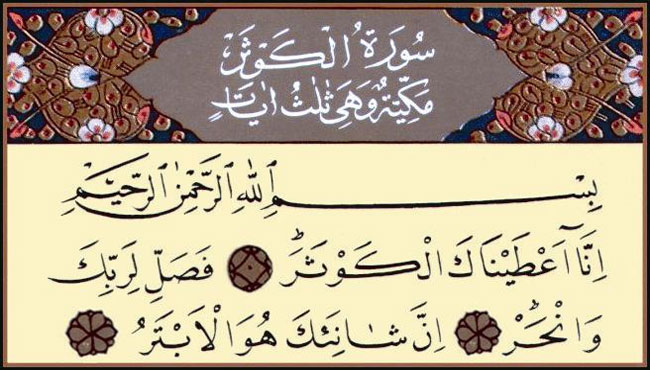 سُورَةُ الْكَوْثَرْ
مَكِّيَّةٌ وَهِىَ ثَلٰثُ اٰيَاتٍ
بِسْــــمِ اللهِ الرَّحْمٰنِ الرَّحٖيمِ
اِنَّٓا اَعْطَيْنَاكَ الْكَوْثَرَۜ فَصَلِّ لِرَبِّكَ
وَانْحَرْۜ اِنَّ شَانِئَكَ هُوَ الْاَبْتَرُ